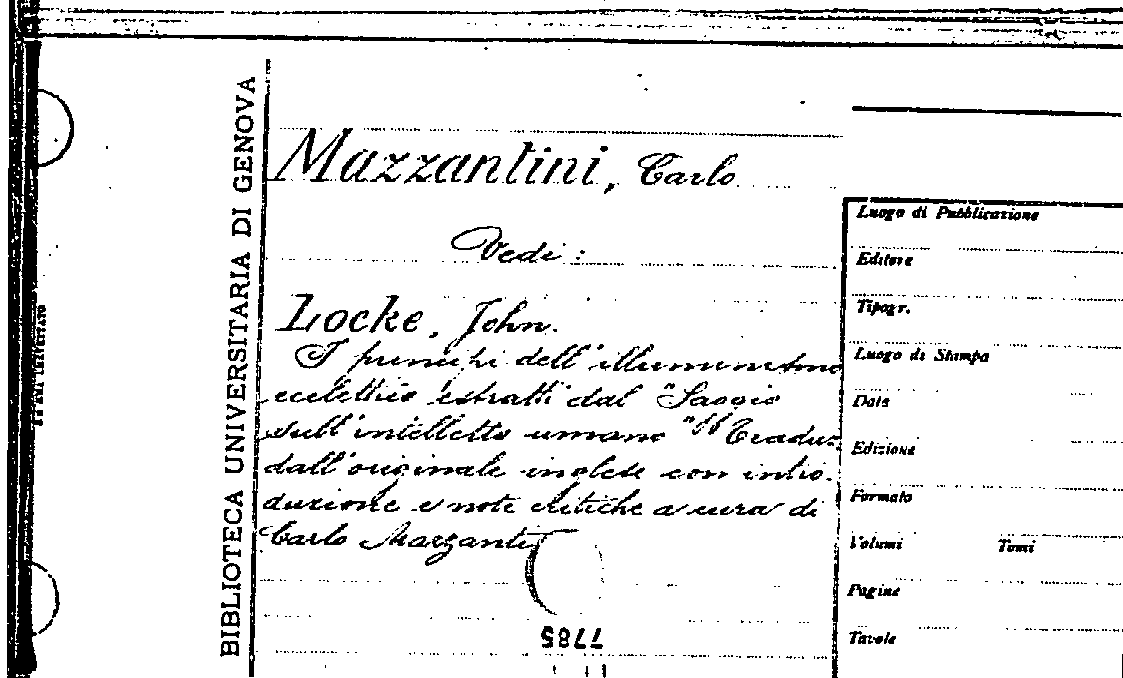 BIBLIOTECA UNIVERSITARIA DI GENOVA
Mazzantini, Carlo
Vedi:
Locke, John.
I principi dell'illuminismo
eclettico estratti dal "Saggio
sull'intelletto umano" Traduz.
dall'originale inglese con intro-
duzione e note critiche a cura di
Carlo Mazzanti
7785
Luogo di Pubblicazione
Editore
Tipogr.
Luogo di Stampa
Data
Edizione
Formato
Volumi Tomi
Pagine
Tavole